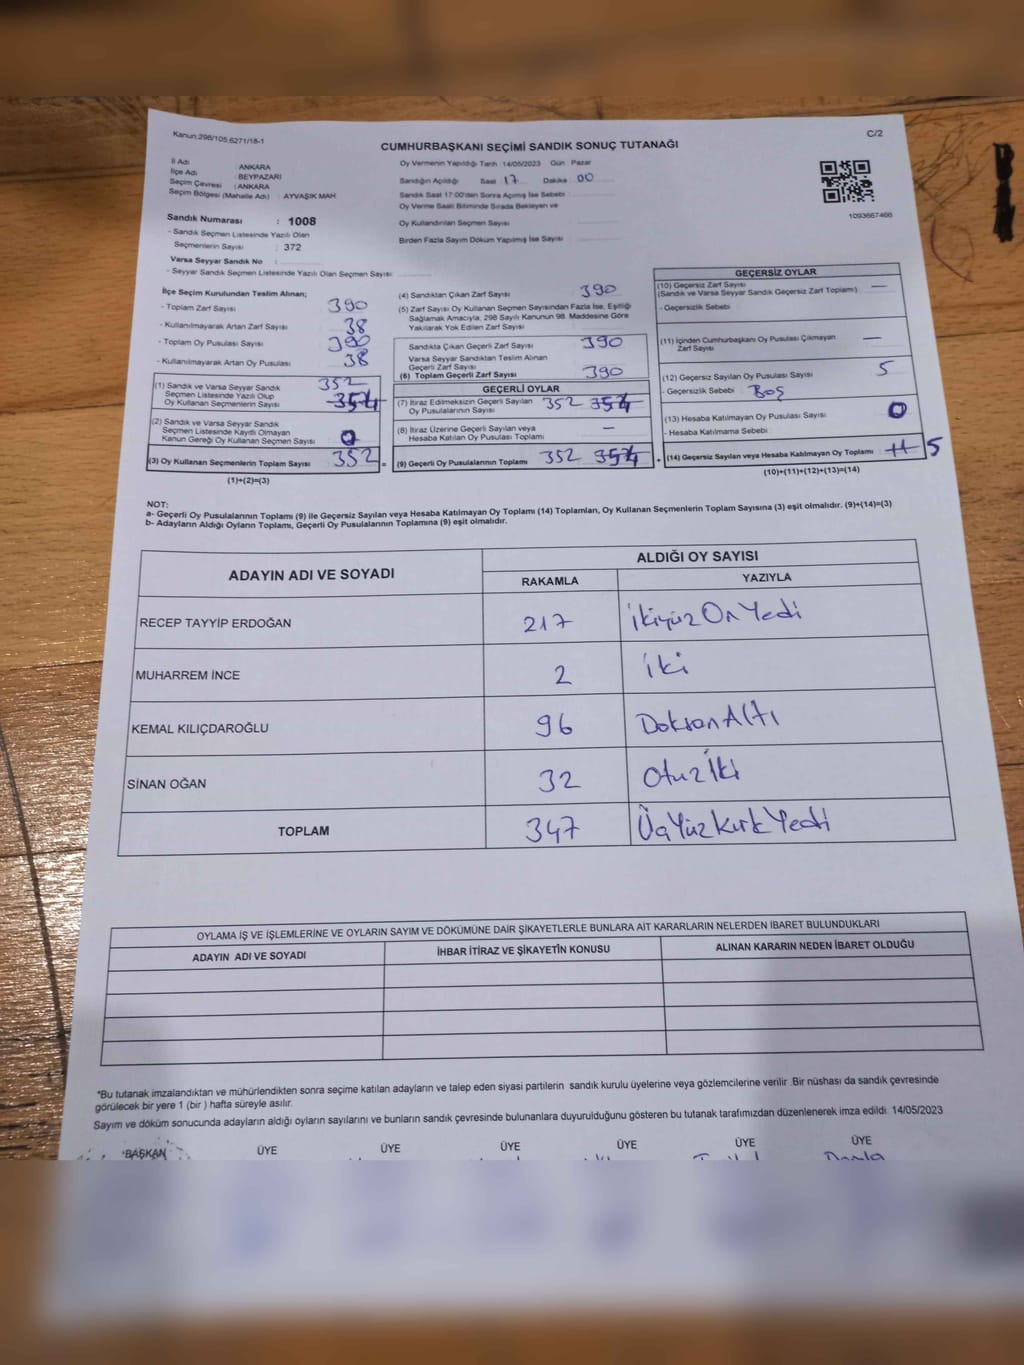 Kanun:298/105,6271/18-1
C/2
CUMHURBAŞKANI SEÇİMİ SANDIK SONUÇ TUTANAĞI
İl Adı : ANKARA
İlçe Adı : BEYPAZARI
Seçim Çevresi : ANKARA
Seçim Bölgesi (Mahalle Adı) : AYVAŞIK MAH
Oy Vermenin Yapıldığı Tarih :14/05/2023 Gün : Pazar
Sandığın Açıldığı Saat 17 Dakika 00
Sandık Saat 17:00'den Sonra Açılmış İse Sebebi
Oy Verme Saati Bitiminde Sırada Bekleyen ve
Oy Kullandırılan Seçmen Sayısı
Birden Fazla Sayım Döküm Yapılmış İse Sayısı
1093667466
Sandık Numarası : 1008
- Sandık Seçmen Listesinde Yazılı Olan
Seçmenlerin Sayısı : 372
Varsa Seyyar Sandık No :
- Seyyar Sandık Seçmen Listesinde Yazılı Olan Seçmen Sayısı
İlçe Seçim Kurulundan Teslim Alınan;
- Toplam Zarf Sayısı 390
- Kullanılmayarak Artan Zarf Sayısı 38
- Toplam Oy Pusulası Sayısı 390
- Kullanılmayarak Artan Oy Pusulası 38
(1) Sandık ve Varsa Seyyar Sandık 352
Seçmen Listesinde Yazılı Olup 354
Oy Kullanan Seçmenlerin Sayısı
(2) Sandık ve Varsa Seyyar Sandık
Seçmen Listesinde Kayıtlı Olmayan
Kanun Gereği Oy Kullanan Seçmen Sayısı 0
(3) Oy Kullanan Seçmenlerin Toplam Sayısı 352 =
(1)+(2)=(3)
(4) Sandıktan Çıkan Zarf Sayısı 390
(5) Zarf Sayısı Oy Kullanan Seçmen Sayısından Fazla İse, Eşitliği
Sağlamak Amacıyla, 298 Sayılı Kanunun 98. Maddesine Göre
Yakılarak Yok Edilen Zarf Sayısı
Sandıkta Çıkan Geçerli Zarf Sayısı 390
Varsa Seyyar Sandıktan Teslim Alınan
Geçerli Zarf Sayısı
(6) Toplam Geçerli Zarf Sayısı 390
GEÇERLİ OYLAR
(7) İtiraz Edilmeksizin Geçerli Sayılan 352 354
Oy Pusulalarının Sayısı
(8) İtiraz Üzerine Geçerli Sayılan veya —
Hesaba Katılan Oy Pusulası Toplamı
(9) Geçerli Oy Pusulalarının Toplamı 352 354 +
GEÇERSİZ OYLAR
(10) Geçersiz Zarf Sayısı —
(Sandık ve Varsa Seyyar Sandık Geçersiz Zarf Toplamı)
- Geçersizlik Sebebi
(11) İçinden Cumhurbaşkanı Oy Pusulası Çıkmayan —
Zarf Sayısı
(12) Geçersiz Sayılan Oy Pusulası Sayısı 5
- Geçersizlik Sebebi Boş
(13) Hesaba Katılmayan Oy Pusulası Sayısı 0
- Hesaba Katılmama Sebebi
(14) Geçersiz Sayılan veya Hesaba Katılmayan Oy Toplamı 5
(10)+(11)+(12)+(13)=(14)
NOT:
a- Geçerli Oy Pusulalarının Toplamı (9) ile Geçersiz Sayılan veya Hesaba Katılmayan Oy Toplamı (14) Toplamları, Oy Kullanan Seçmenlerin Toplam Sayısına (3) eşit olmalıdır. (9)+(14)=(3)
b- Adayların Aldığı Oyların Toplamı, Geçerli Oy Pusulalarının Toplamına (9) eşit olmalıdır.
ADAYIN ADI VE SOYADI
ALDIĞI OY SAYISI
RAKAMLA YAZIYLA
RECEP TAYYİP ERDOĞAN 217 İkiyüz On Yedi
MUHARREM İNCE 2 iki
KEMAL KILIÇDAROĞLU 96 Doksan Altı
SİNAN OĞAN 32 Otuz İki
TOPLAM 347 Üç Yüz Kırk Yedi
OYLAMA İŞ VE İŞLEMLERİNE VE OYLARIN SAYIM VE DÖKÜMÜNE DAİR ŞİKAYETLERLE BUNLARA AİT KARARLARIN NELERDEN İBARET BULUNDUKLARI
ADAYIN ADI VE SOYADI İHBAR İTİRAZ VE ŞİKAYETİN KONUSU ALINAN KARARIN NEDEN İBARET OLDUĞU
*Bu tutanak imzalandıktan ve mühürlendikten sonra seçime katılan adayların ve talep eden siyasi partilerin sandık kurulu üyelerine veya gözlemcilerine verilir .Bir nüshası da sandık çevresinde
görülecek bir yere 1 (bir ) hafta süreyle asılır.
Sayım ve döküm sonucunda adayların aldığı oyların sayılarını ve bunların sandık çevresinde bulunanlara duyurulduğunu gösteren bu tutanak tarafımızdan düzenlenerek imza edildi. 14/05/2023
BAŞKAN ÜYE ÜYE ÜYE ÜYE ÜYE ÜYE